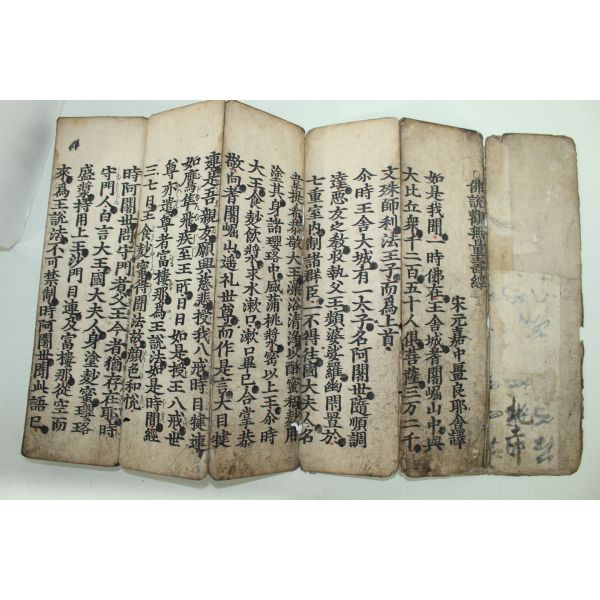 佛說觀無量壽經
宋元嘉中畺良耶舍譯
如是我聞一時佛在王舍城耆闍崛山中與
大比丘衆千二百五十人俱菩薩三万二千
文殊師利法王子而爲上首
尒時王舍大城有一太子名阿闍世隨順調
達惡友之敎收執父王頻婆娑羅幽閉置於
七重室內制諸群臣一不得往國大夫人名
韋提希恭敬大王澡浴清淨以酥蜜和麨用
塗其身諸瓔珞中盛蒲桃漿密以上王尒時
大王食麨飮漿求水漱口漱口畢已合掌恭
敬向耆闍崛山遥礼世尊而作是言大目犍
連是吾親友願興慈悲授我八戒時目犍連
如鷹隼飛疾至王所日日如是授王八戒世
尊亦遣尊者富樓那爲王說法如是時間經
三七日王食麨蜜得聞法故顔色和悅
時阿闍世問守門者父王今者猶存在耶時
守門人白言大王國大夫人身塗麨蜜瓔珞
盛漿持用上王沙門目連及富樓那從空而
來爲王說法不可禁制時阿闍世聞此語已